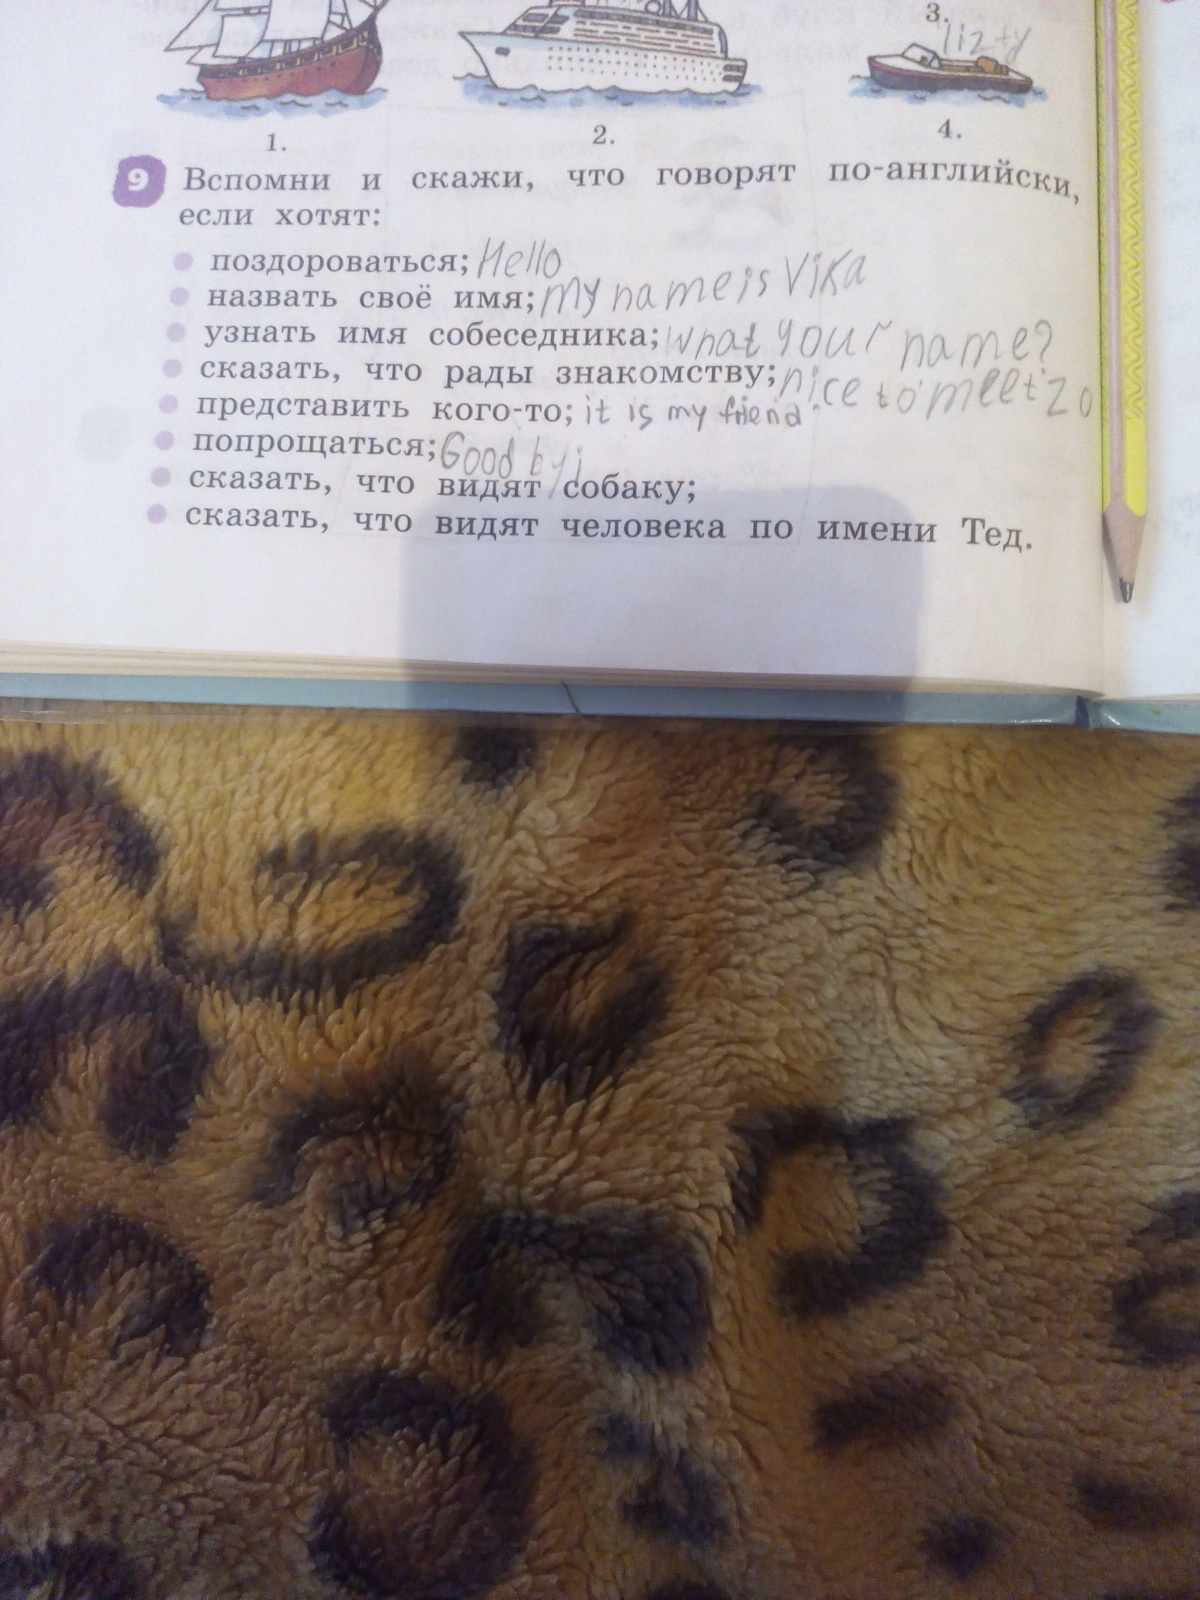 3.
lizzy
1.
2.
4.
9 Вспомни и скажи, что говорят по-английски,
если хотят:
поздороваться; Hello
назвать своё имя; my name is Vika
узнать имя собеседника; what your name?
сказать, что рады знакомству; nice to meet
представить кого-то; it is my friend.
попрощаться; Good by
сказать, что видят собаку;
сказать, что видят человека по имени Тед.